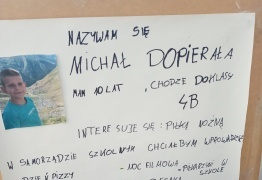 NAZYWAM SIĘ
MICHAŁ DOPIERAŁA
MAM 10 LAT, CHODZĘ DO KLASY
4B
INTERESUJE SIĘ: PIŁKĄ NOŻNĄ
W SAMORZĄDZIE SZKOLNYM CHCIAŁBYM WPROWADZIĆ
DZIEŃ PIZZY
- NOC FILMOWA
W
SZKOLE